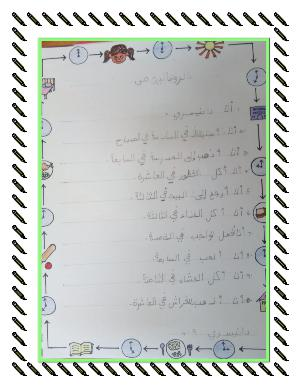 ١. أنا دانيسري.
٢. أنا أستيقظ في الساعة في الصباح
٣. أنا أذهب إلى المدرسة في السابعة.
٤. أنا أكل الفطور في العاشرة.
٥. أنا أرجع إلى البيت في الثالثة.
٦. أنا أكل الغداء في الثالثة.
٧. أنا أفعل الواجب في الخامسة.
٨. أنا ألعب في السابعة.
٩. أنا أكل العشاء في الثامنة.
١٠. أنا أذهب الفراش في العاشرة.
دانيسري